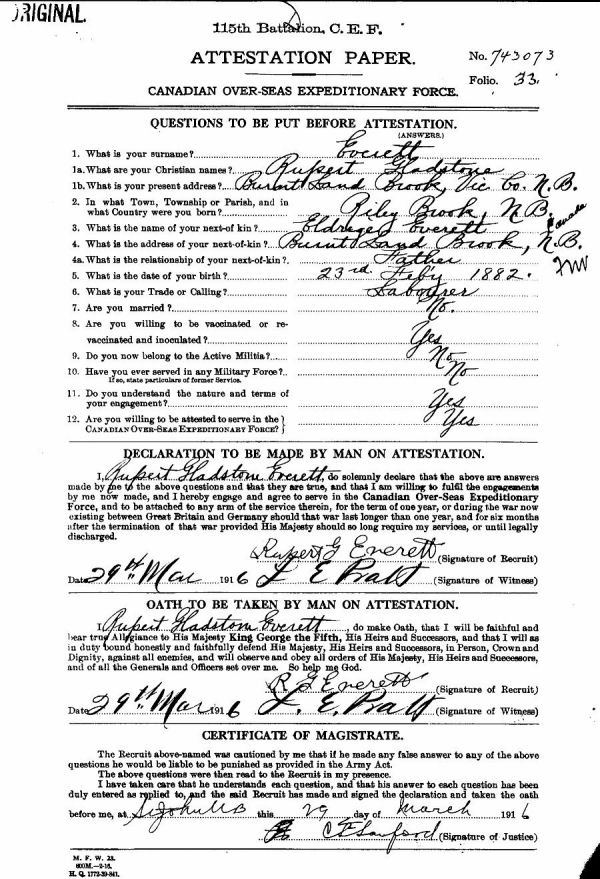 ORIGINAL
115th Battalion, C. E. F.
ATTESTATION PAPER.
No. 743073
Folio. 33.
CANADIAN OVER-SEAS EXPEDITIONARY FORCE.
QUESTIONS TO BE PUT BEFORE ATTESTATION.
(ANSWERS.)
1. What is your surname? Everett
1a. What are your Christian names? Rupert Gladstone
1b. What is your present address? Burnt Land Brook, Vic. Co. N.B.
2. In what Town, Township or Parish, and in
what Country were you born? Riley Brook, N.B. Canada
3. What is the name of your next-of kin? Eldridged Everett
4. What is the address of your next-of-kin? Burnt Land Brook, N.B.
4a. What is the relationship of your next-of-kin? Father
5. What is the date of your birth? 23rd Feb'y 1882.
6. What is your Trade or Calling? Labourer
7. Are you married? No.
8. Are you willing to be vaccinated or re-
vaccinated and inoculated? Yes
9. Do you now belong to the Active Militia? No
10. Have you ever served in any Military Force? No
If so, state particulars of former Service.
11. Do you understand the nature and terms of
your engagement? Yes
12. Are you willing to be attested to serve in the
CANADIAN OVER-SEAS EXPEDITIONARY FORCE? } Yes
DECLARATION TO BE MADE BY MAN ON ATTESTATION.
I, Rupert Gladstom Everett, do solemnly declare that the above are answers
made by me to the above questions and that they are true, and that I am willing to fulfil the engagements
by me now made, and I hereby engage and agree to serve in the Canadian Over-Seas Expeditionary
Force, and to be attached to any arm of the service therein, for the term of one year, or during the war now
existing between Great Britain and Germany should that war last longer than one year, and for six months
after the termination of that war provided His Majesty should so long require my services, or until legally
discharged.
Rupert G Everett (Signature of Recruit)
Date 29th Mar 1916 L E Pratt (Signature of Witness)
OATH TO BE TAKEN BY MAN ON ATTESTATION.
I, Rupert Gladstom Everett, do make Oath, that I will be faithful and
bear true Allegiance to His Majesty King George the Fifth, His Heirs and Successors, and that I will as
in duty bound honestly and faithfully defend His Majesty, His Heirs and Successors, in Person, Crown and
Dignity, against all enemies, and will observe and obey all orders of His Majesty, His Heirs and Successors,
and of all the Generals and Officers set over me. So help me God.
R G Everett (Signature of Recruit)
Date 29th Mar 1916 L. E. Pratt (Signature of Witness)
CERTIFICATE OF MAGISTRATE.
The Recruit above-named was cautioned by me that if he made any false answer to any of the above
questions he would be liable to be punished as provided in the Army Act.
The above questions were then read to the Recruit in my presence.
I have taken care that he understands each question, and that his answer to each question has been
duly entered as replied to, and the said Recruit has made and signed the declaration and taken the oath
before me, at St John NB this 29 day of March 1916
C F Sanford (Signature of Justice)
M. F. W. 23.
600M.—2-16.
H. Q. 1772-39-841.